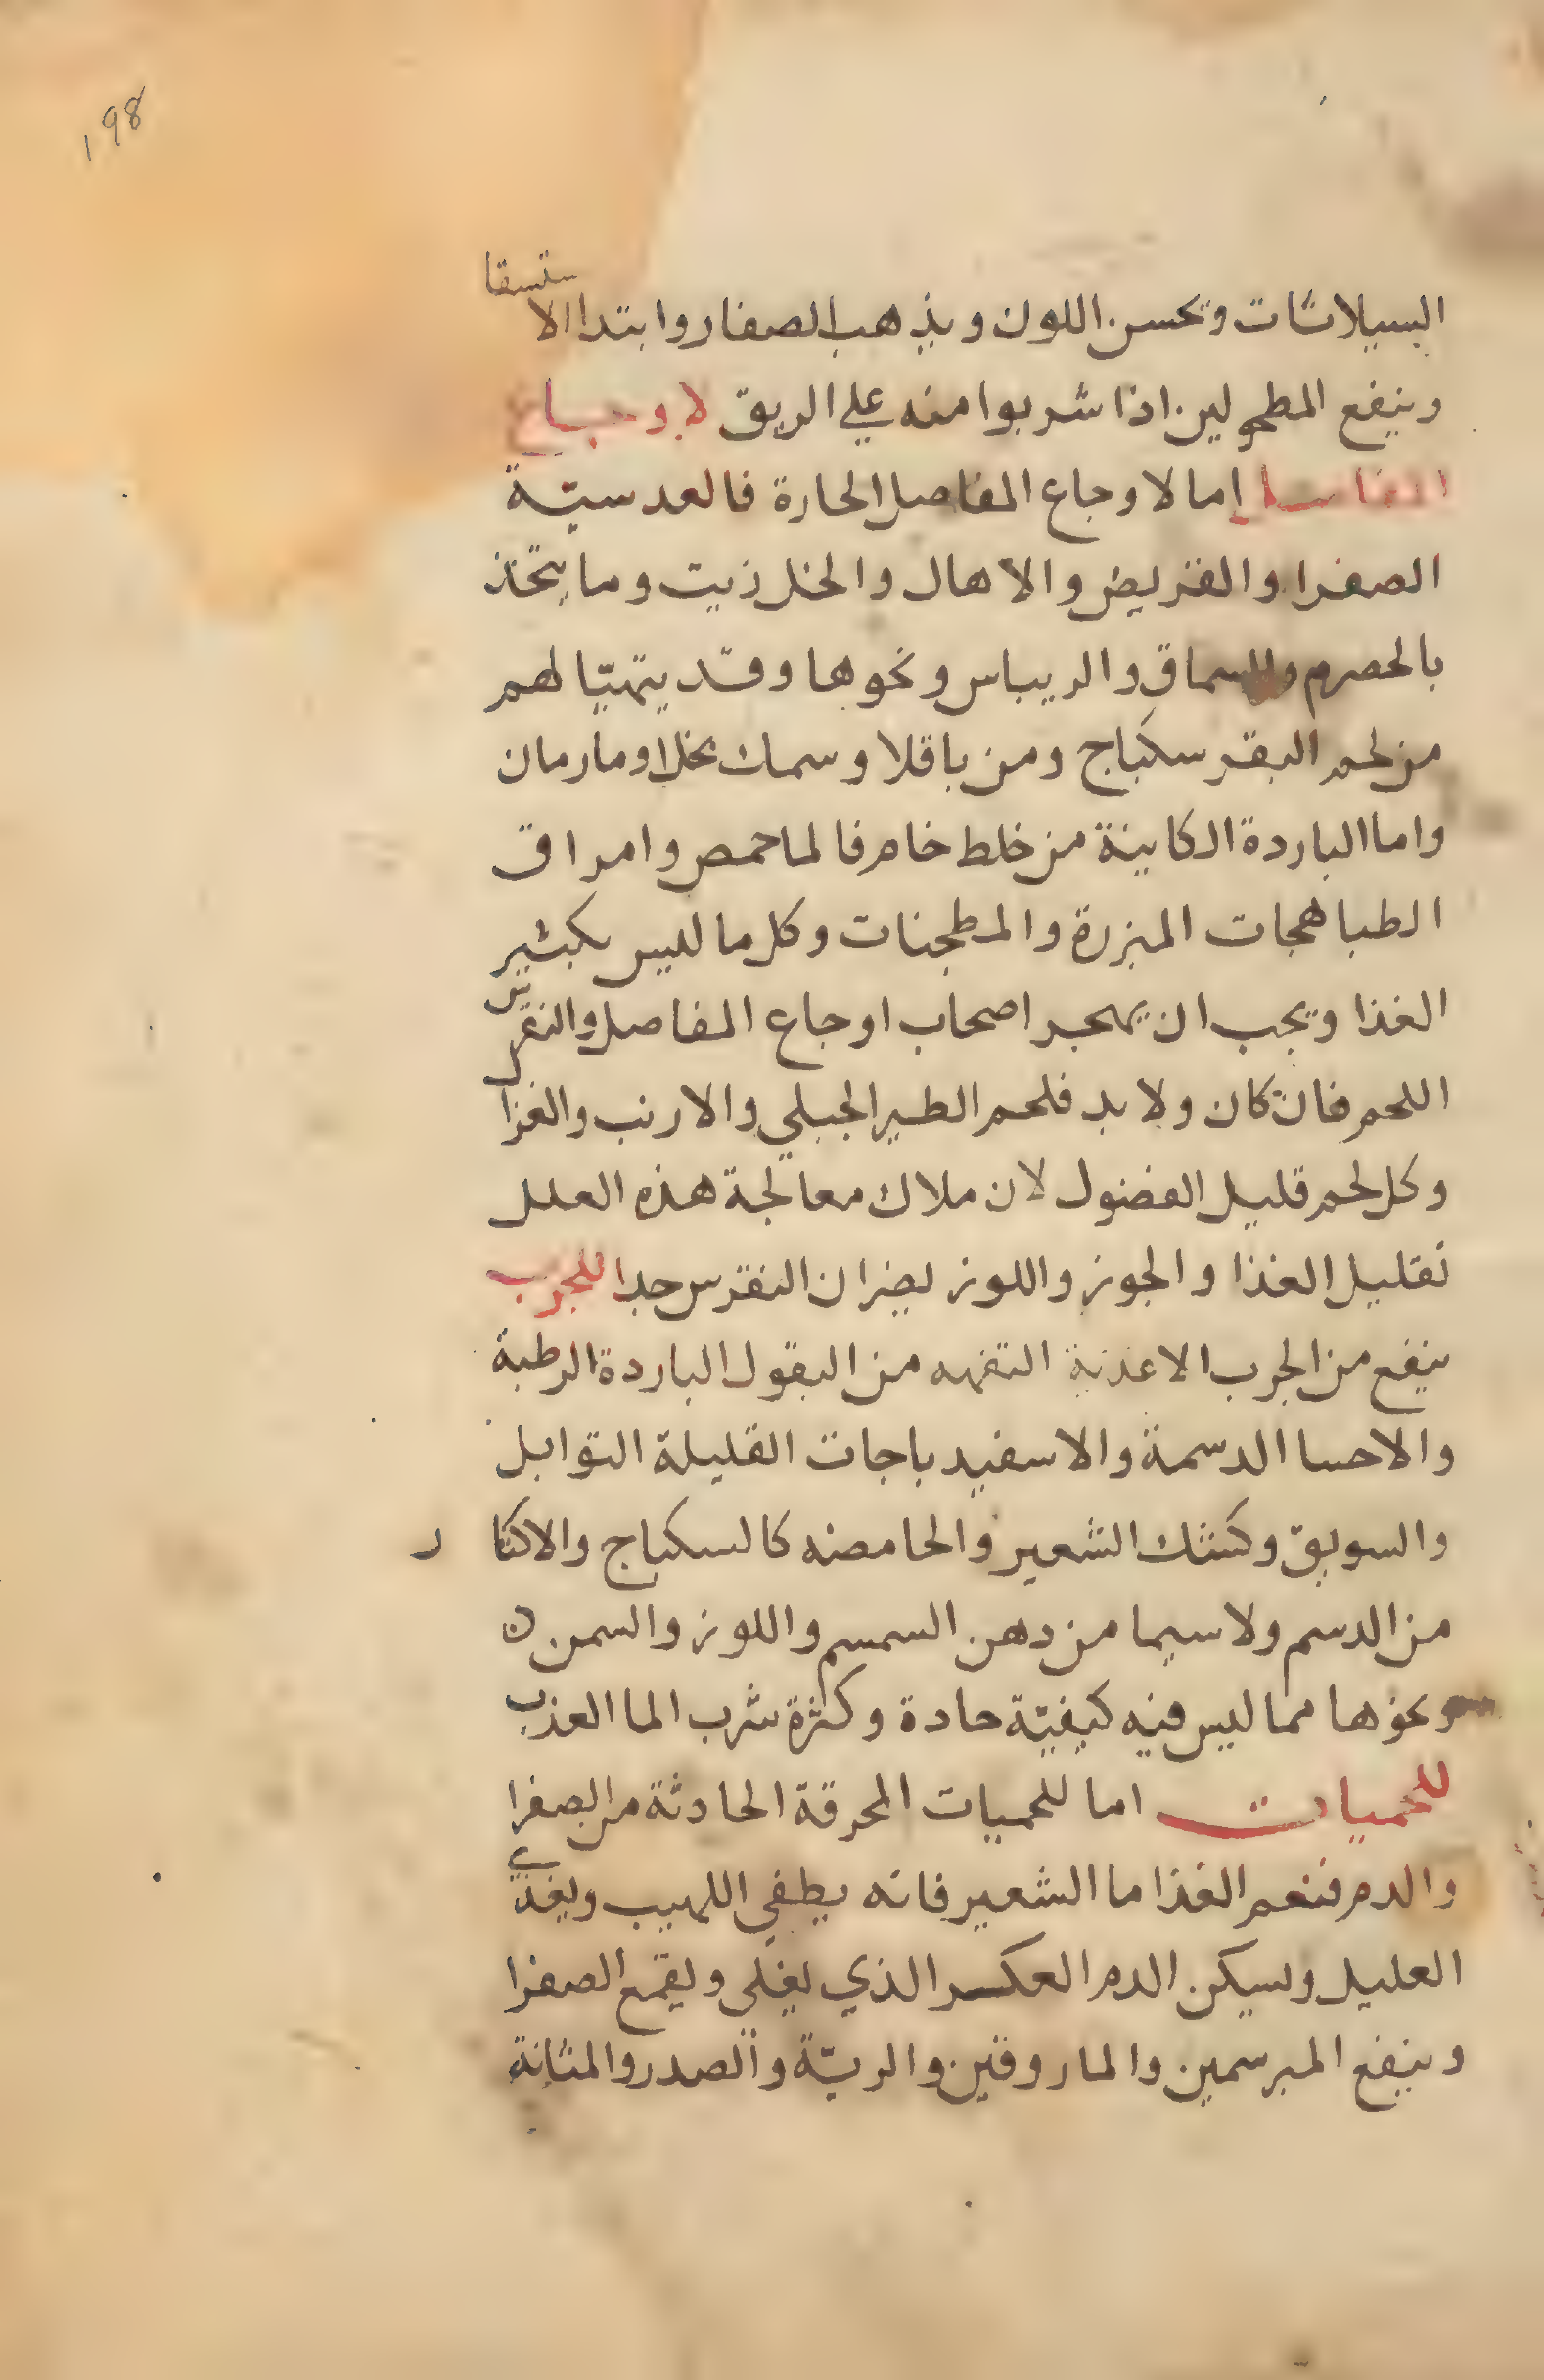 198
السيلانات وتحسن اللون ويذهب الصفار وابتدا الاستسقا
وينفع المطحولين اذا شربوا منه علي الريق لاوجاع
المفاصل اما لاوجاع المفاصل الحارة فالعدسية
الصفرا والقريض والاهال والخل زيت وما يتخذ
بالحصرم والسماق والريباس ونحوها وقد يتهيا لهم
من لحم البقر سكباج ومن باقلا وسمك بخل او مارمان
واما الباردة الكاينة من خلط خام فالماحمص وامراق
الطباهجات المبزرة والمطجنات وكل ما ليس بكثير
الغذا ويجب ان يهجر اصحاب اوجاع المفاصل والنقرس
اللحم فان كان ولا بد فلحم الطير الجبلي والارنب والغزا
وكل لحم قليل الفضول لان ملاك معالجة هذه العلل
تقليل الغذا والجوز واللوز يضران النقرس جدا للجرب
ينفع من الجرب الاغذية التفهه من البقول الباردة الرطبة
والاحسا الدسمة والاسفيدباجات القليلة التوابل
والسويق وكشك الشعير والحامضه كالسكباج والاكثار
من الدسم ولا سيما من دهن السمسم واللوز والسمن
ونحوها مما ليس فيه كيفية حادة وكثرة شرب الما العذب
للحميات اما للحميات المحرقة الحادثة من الصفرا
والدم فنعم الغذا ما الشعير فانه يطفي اللهيب ويغذي
العليل ويسكن الدم العكر الذي يغلي ويقمع الصفرا
وينفع المبرسمين والماروقين والرية والصدر والمثانة